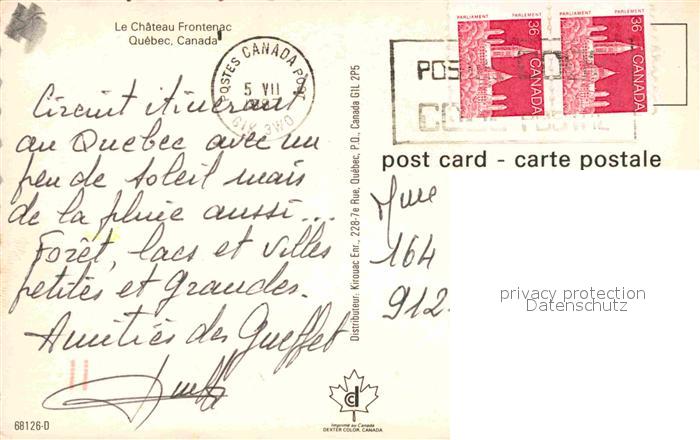 Le Château Frontenac
Québec, Canada
POSTES CANADA POST
5 VII
G1K 3W0
PARLIAMENT PARLEMENT
36
CANADA
PARLIAMENT PARLEMENT
36
CANADA
POS
CODE POSTAL
post card - carte postale
Circuit itinérant
au Quebec avec un
peu de soleil mais
de la pluie aussi...
Forêt, lacs et villes
petites et grandes.
Amitiés des Gueffet
Distributeur: Kirouac Enr., 228-7e Rue, Québec, P.Q. Canada G1L 2P5
Mme
164
912
privacy protection
Datenschutz
cd
Imprimé au Canada
DEXTER COLOR, CANADA
68126-D